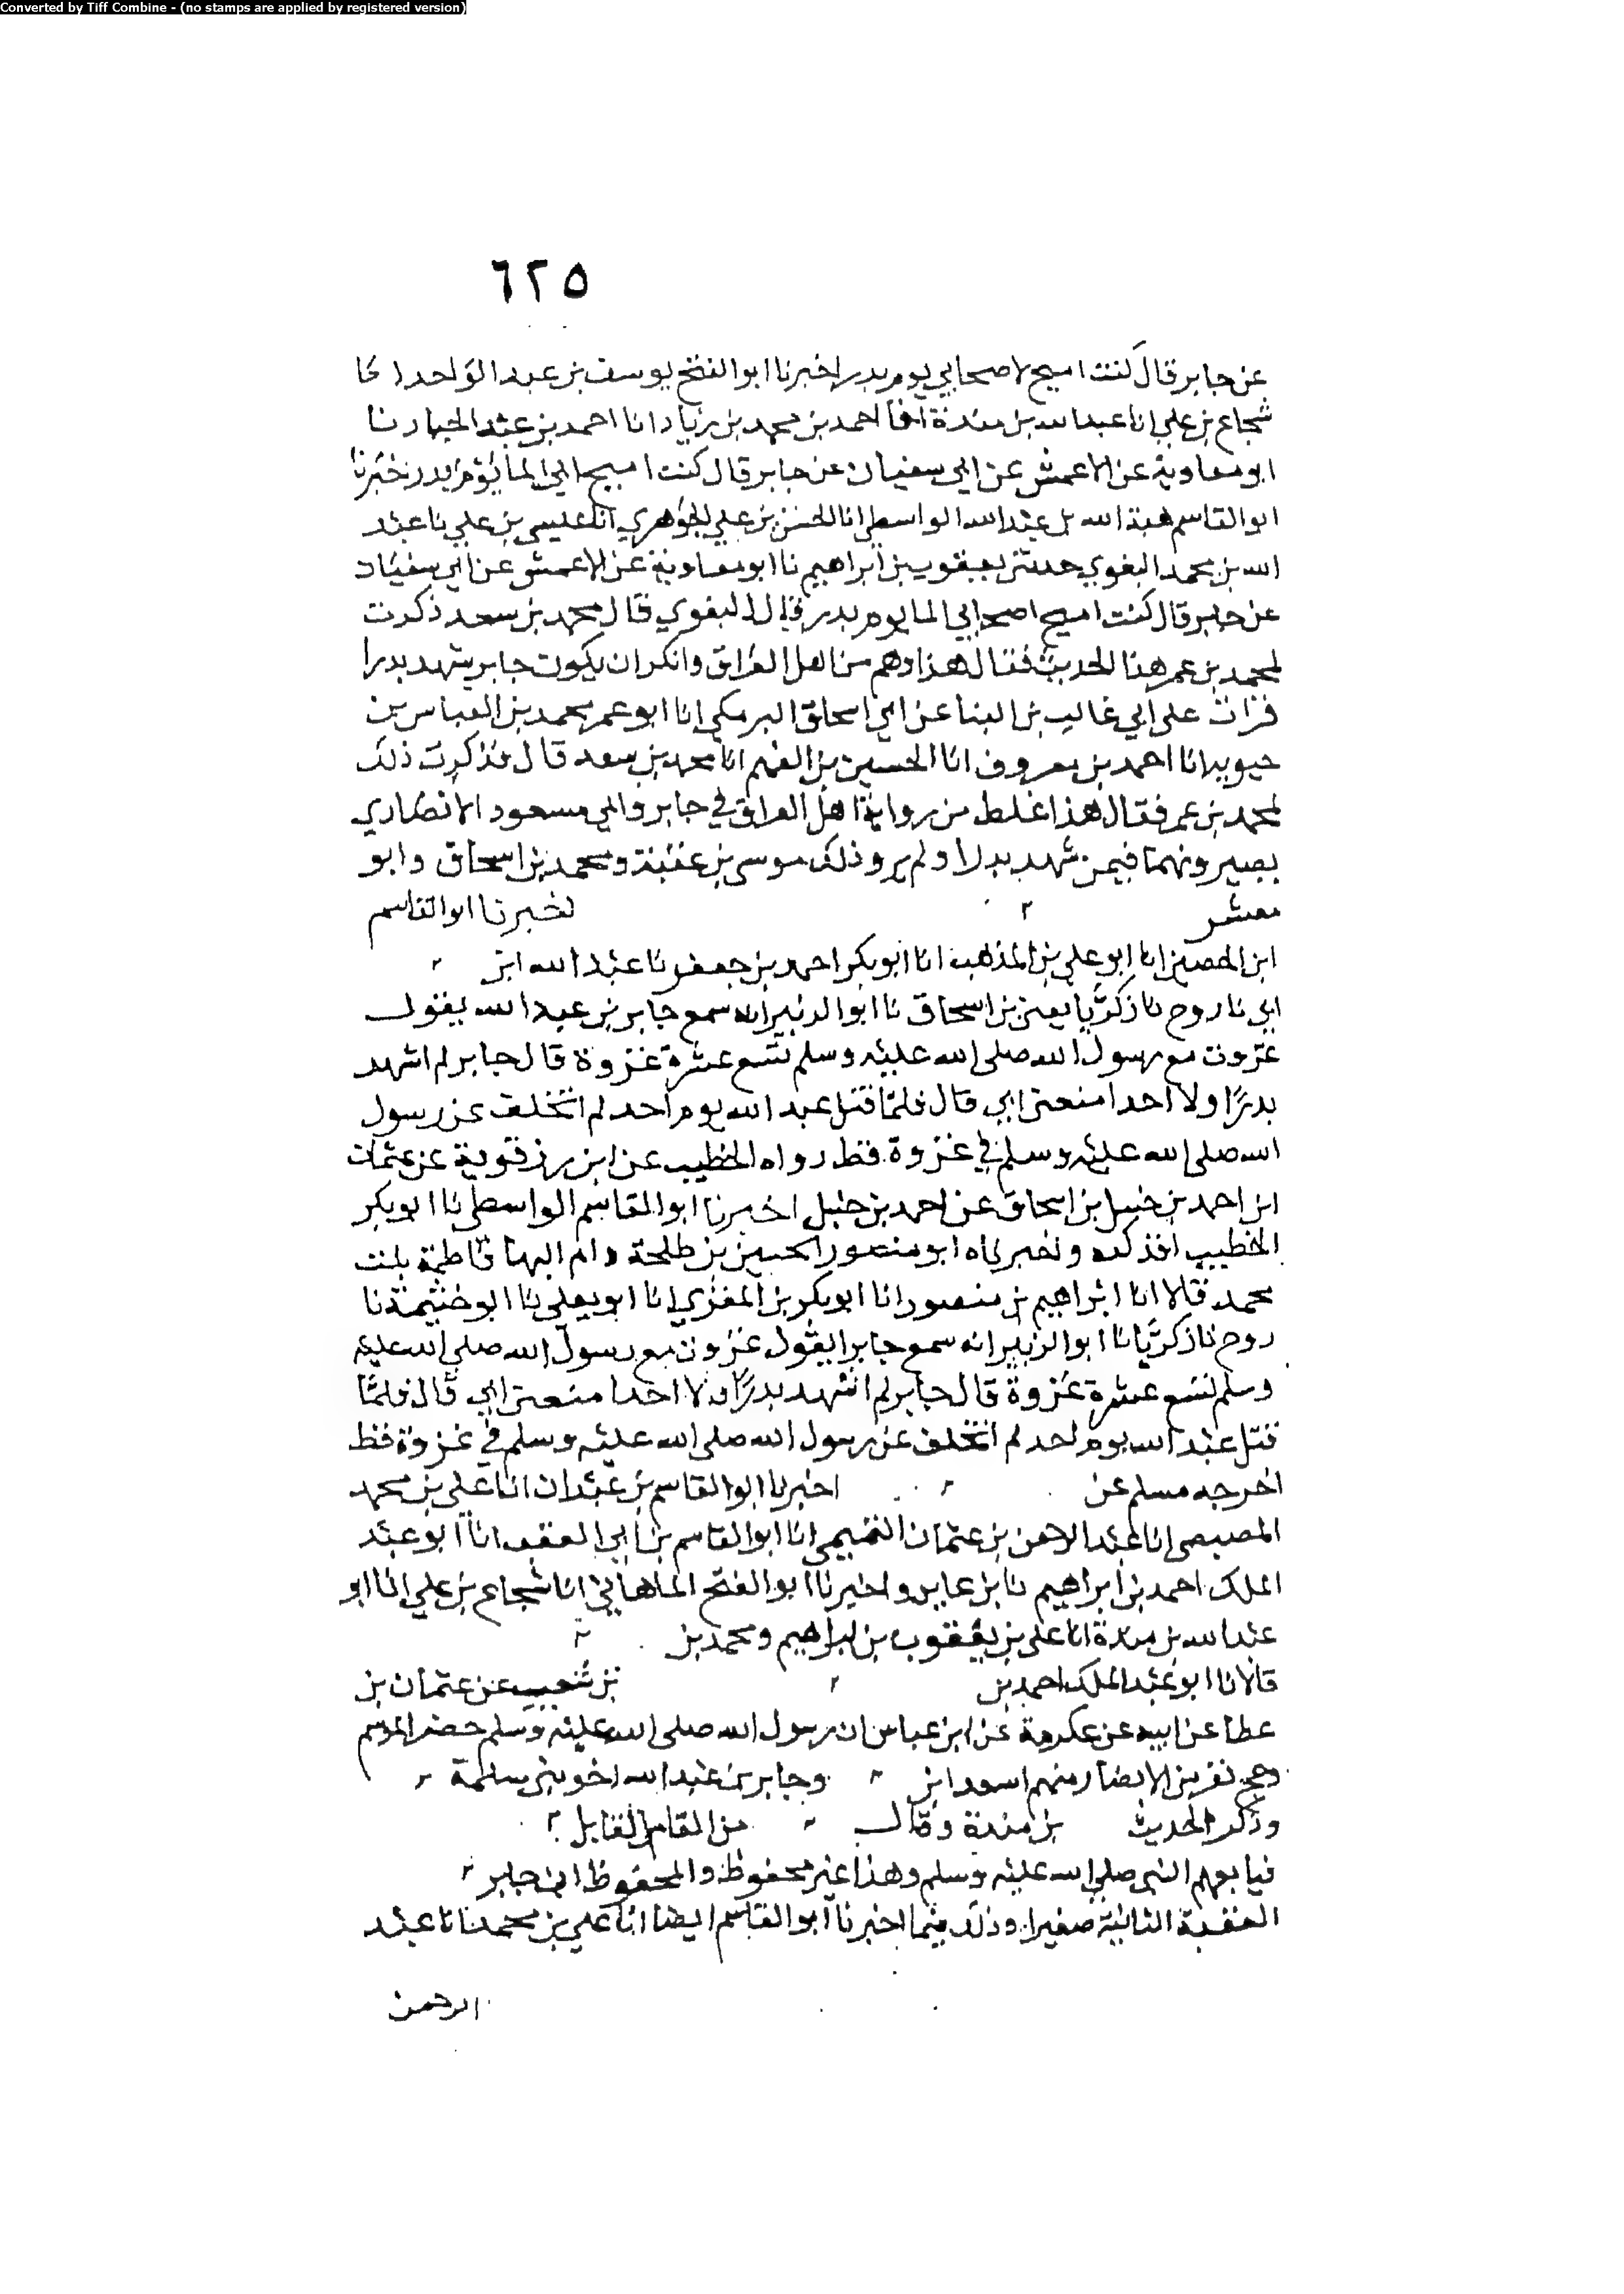 Converted by Tiff Combine - (no stamps are applied by registered version)
٦٢٥
عن جابر قال كنت اميح لاصحابي يوم بدر اخبرنا ابو الفتح يوسف بن عبد الواحد انا
شجاع بن علي انا عبد الله بن مندة انا احمد بن محمد بن زياد انا احمد بن عبد الجبار نا
ابو معاوية عن الاعمش عن ابي سفيان عن جابر قال كنت اميح اصحابي الما يوم بدر اخبرنا
ابو القاسم هبة الله بن عبد الله الواسطي انا الحسن بن علي الجوهري انا عيسى بن علي نا عبد
الله بن محمد البغوي حدثني يعقوب بن ابراهيم نا ابو معاوية عن الاعمش عن ابي سفيان
عن جابر قال كنت اميح اصحابي الما يوم بدر قال البغوي قال محمد بن سعد ذكرت
لمحمد بن عمر هذا الحديث فقال هذا وهم من اهل العراق وانكر ان يكون جابر شهد بدرا
قرات على ابي غالب بن البنا عن ابي اسحاق البرمكي انا ابو عمر محمد بن العباس بن
حيويه انا احمد بن معروف انا الحسين بن الفهم انا محمد بن سعد قال فذكرت ذلك
لمحمد بن عمر فقال هذا غلط من رواية اهل العراق في جابر وابي مسعود الانصاري
يصيرونهما فيمن شهد بدرا ولم يرو ذلك موسى بن عقبة ومحمد بن اسحاق وابو
معشر اخبرنا ابو القاسم
ابن الحصين انا ابو علي بن المذهب انا ابو بكر احمد بن جعفر نا عبد الله ابن
ابي نا روح نا زكريا يعني بن اسحاق نا ابو الزبير انه سمع جابر بن عبد الله يقول
غزوت مع رسول الله صلى الله عليه وسلم تسع عشرة غزوة قال جابر لم اشهد
بدرًا ولا احدا منعني ابي قال فلما قتل عبد الله يوم احد لم اتخلف عن رسول
الله صلى الله عليه وسلم في غزوة قط رواه الخطيب عن ابن رزقوية عن عثمان
ابن احمد بن حنبل بن اسحاق عن احمد بن حنبل اخبرنا ابو القاسم الواسطي نا ابو بكر
الخطيب فذكره واخبرناه ابو منصور الحسين بن طلحة وام البها فاطمة بنت
محمد قالا انا ابراهيم بن منصور انا ابو بكر بن المقري انا ابو يعلى نا ابو خيثمة نا
روح نا زكريا نا ابو الزبير انه سمع جابرا يقول غزوت مع رسول الله صلى الله عليه
وسلم تسع عشرة غزوة قال جابر لم اشهد بدرًا ولا احدا منعني ابي قال فلما
قتل عبد الله يوم احد لم اتخلف عن رسول الله صلى الله عليه وسلم في غزوة قط
اخرجه مسلم عن اخبرنا ابو القاسم بن عبدان انا علي بن محمد
المصيصي انا عبد الرحمن بن عثمان التميمي انا ابو القاسم بن ابي العقب انا ابو عبد
الملك احمد بن ابراهيم نا بن عايذ واخبرنا ابو الفتح الماهاني انا شجاع بن علي انا ابو
عبد الله بن مندة انا علي بن يعقوب بن ابراهيم ومحمد بن
قالا نا ابو عبد الملك احمد بن بن شعيب عن عثمان بن
عطا عن ابيه عن عكرمة عن ابن عباس ان رسول الله صلى الله عليه وسلم حضر الموسم
وحج نفر من الانصار منهم اسعد ابن وجابر بن عبد الله اخو بني سلمة
وذكر الحديث بن مندة وقال من القام القابل
فبايعهم النبي صلى الله عليه وسلم وهذا غير محفوظ والمحفوظ ان جابر
العقبة الثانية صغيرا وذلك فيما اخبرنا ابو القاسم ايضا انا علي بن محمد انا عبد
الرحمن